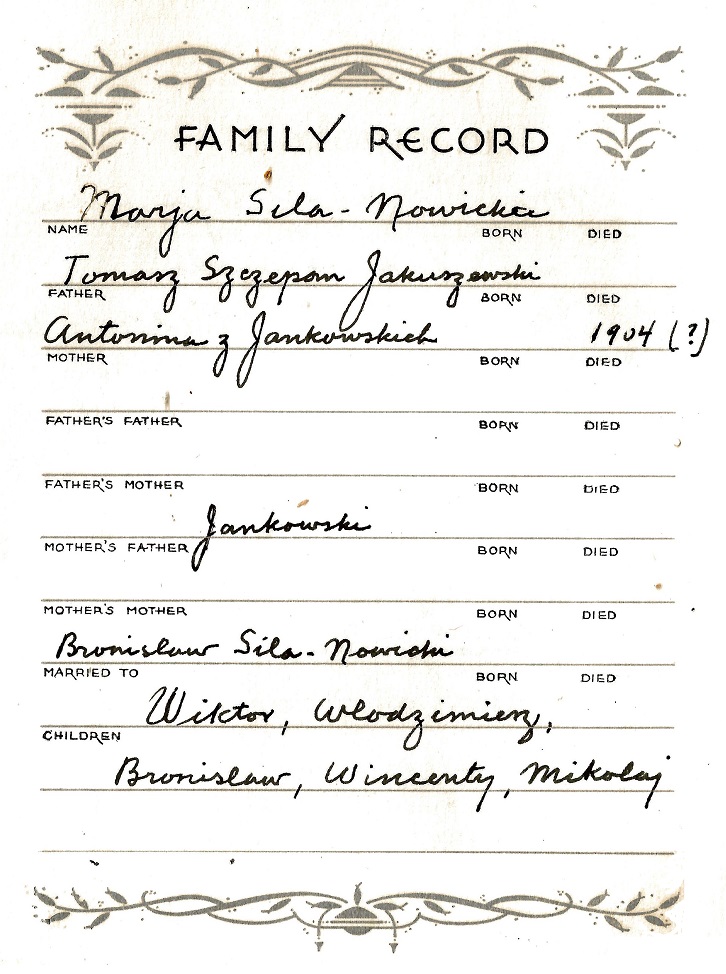 FAMILY RECORD
Marja Sila-Nowicka
NAME BORN DIED
Tomasz Szczepan Jakuszewski
FATHER BORN DIED
Antonina z Jankowskich 1904 (?)
MOTHER BORN DIED
FATHER'S FATHER BORN DIED
FATHER'S MOTHER BORN DIED
Jankowski
MOTHER'S FATHER BORN DIED
MOTHER'S MOTHER BORN DIED
Bronislaw Sila-Nowicki
MARRIED TO BORN DIED
Wiktor, Wlodzimierz,
CHILDREN
Bronislaw, Wincenty, Mikolaj